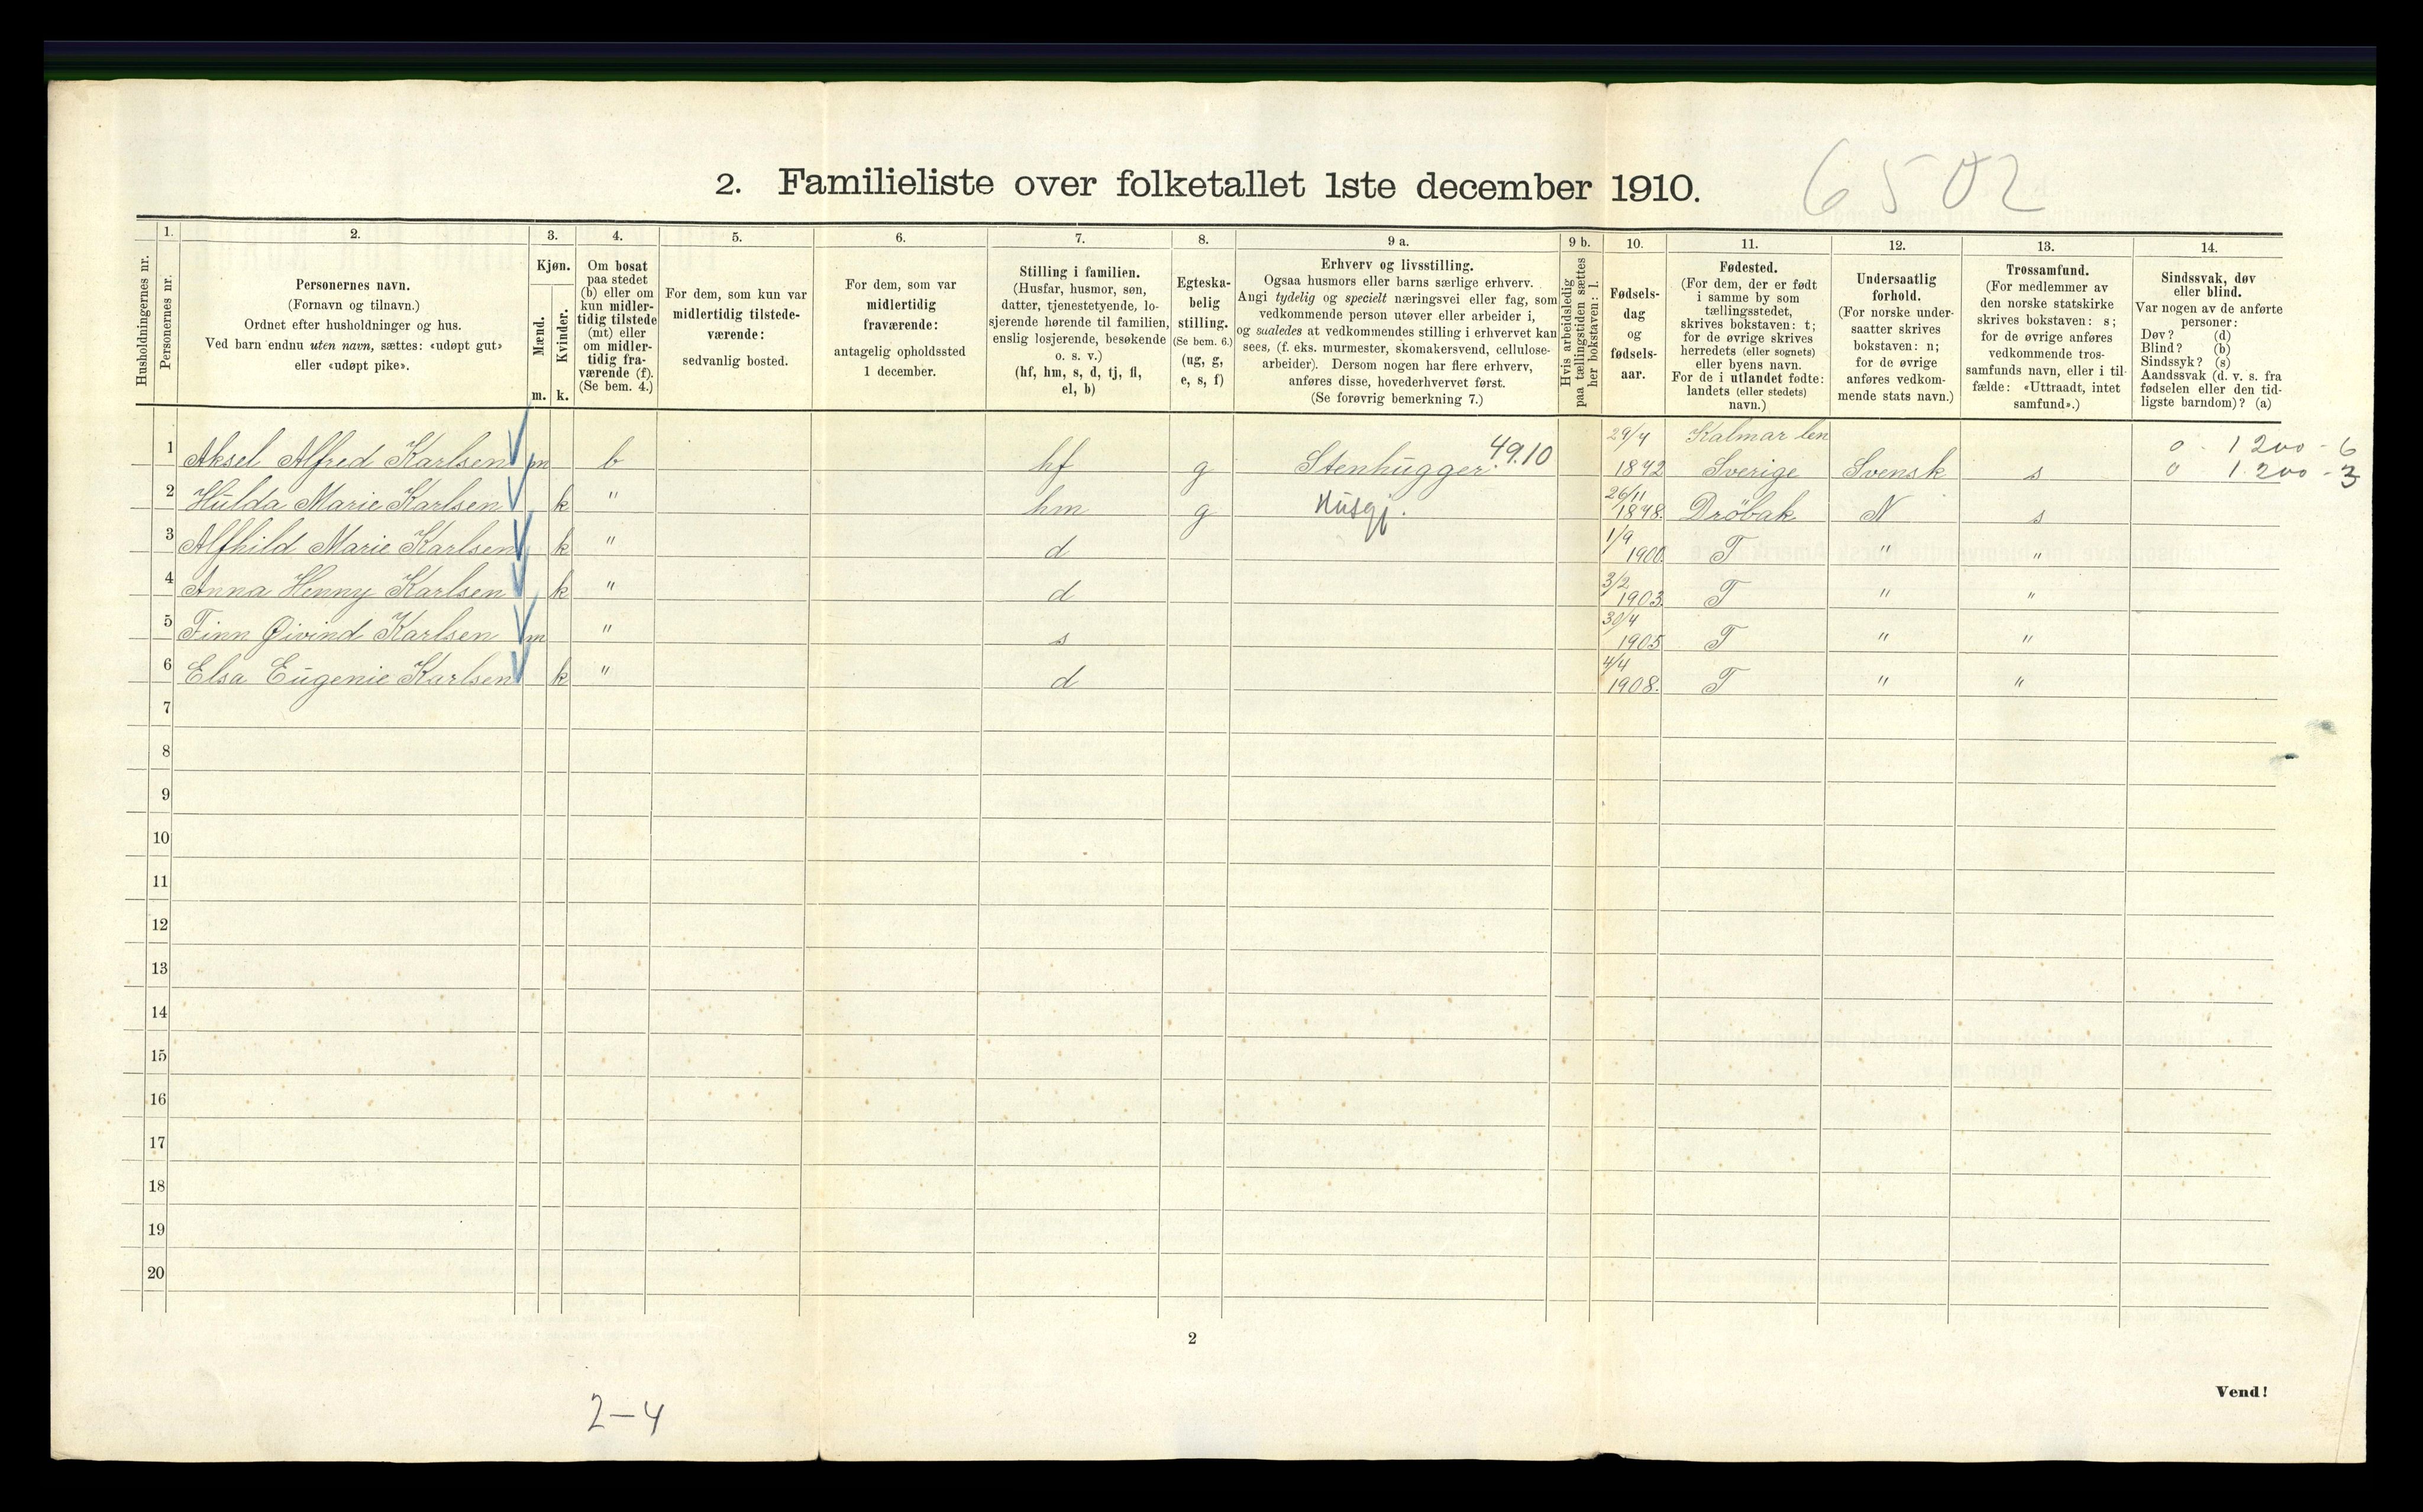 6502
2. Familieliste over folketallet 1ste december 1910.
Husholdningernes nr.
1.
Personernes nr.
2.
Personernes navn.
(Fornavn og tilnavn.)
Ordnet efter husholdninger og hus.
Ved barn endnu uten navn, sættes: «udøpt gut»
eller «udøpt pike».
3.
Kjøn.
Mænd.
Kvinder.
m. k.
4.
Om bosat
paa stedet
(b) eller om
kun midler-
tidig tilstede
(mt) eller
om midler-
tidig fra-
værende (f).
(Se bem. 4.)
5.
For dem, som kun var
midlertidig tilstede-
værende:
sedvanlig bosted.
6.
For dem, som var
midlertidig
fraværende:
antagelig opholdssted
1 december.
7.
Stilling i familien.
(Husfar, husmor, søn,
datter, tjenestetyende, lo-
sjerende hørende til familien,
enslig losjerende, besøkende
o. s. v.)
(hf, hm, s, d, tj, fl,
el, b)
8.
Egteska-
belig
stilling.
(Se bem. 6.)
(ug, g,
e, s, f)
9 a.
Erhverv og livsstilling.
Ogsaa husmors eller barns særlige erhverv.
Angi tydelig og specielt næringsvei eller fag, som
vedkommende person utøver eller arbeider i,
og saaledes at vedkommendes stilling i erhvervet kan
sees, (f. eks. murmester, skomakersvend, cellulose-
arbeider). Dersom nogen har flere erhverv,
anføres disse, hovederhvervet først.
(Se forøvrig bemerkning 7.)
9 b.
Hvis arbeidsledig
paa tællingstiden sættes
her bokstaven: l.
10.
Fødsels-
dag
og
fødsels-
aar.
11.
Fødested.
(For dem, der er født
i samme by som
tællingsstedet,
skrives bokstaven: t;
for de øvrige skrives
herredets (eller sognets)
eller byens navn.
For de i utlandet fødte:
landets (eller stedets)
navn.)
12.
Undersaatlig
forhold.
(For norske under-
saatter skrives
bokstaven: n;
for de øvrige
anføres vedkom-
mende stats navn.)
13.
Trossamfund.
(For medlemmer av
den norske statskirke
skrives bokstaven: s;
for de øvrige anføres
vedkommende tros-
samfunds navn, eller i til-
fælde: «Uttraadt, intet
samfund».)
14.
Sindssvak, døv
eller blind.
Var nogen av de anførte
personer:
Døv? (d)
Blind? (b)
Sindssyk? (s)
Aandssvak (d. v. s. fra
fødselen eller den tid-
ligste barndom)? (a)
1 Aksel Alfred Karlsen m b hf g Stenhugger. 49.10 29/4 1872 Kalmar len Sverige Svensk s 0 1200 - 6
0 1.200 - 3
2 Hulda Marie Karlsen k " hm g Husgj. 26/11 1878. Dröbak N s
3 Alfhild Marie Karlsen k " d 1/9 1900. T " "
4 Anna Henny Karlsen k " d 3/2 1903. T " "
5 Finn Øivind Karlsen m " s 30/4 1905 T " "
6 Elsa Eugenie Karlsen k " d 4/4 1908. T " "
7
8
9
10
11
12
13
14
15
16
17
18
19
20
2
Vend!
2-4